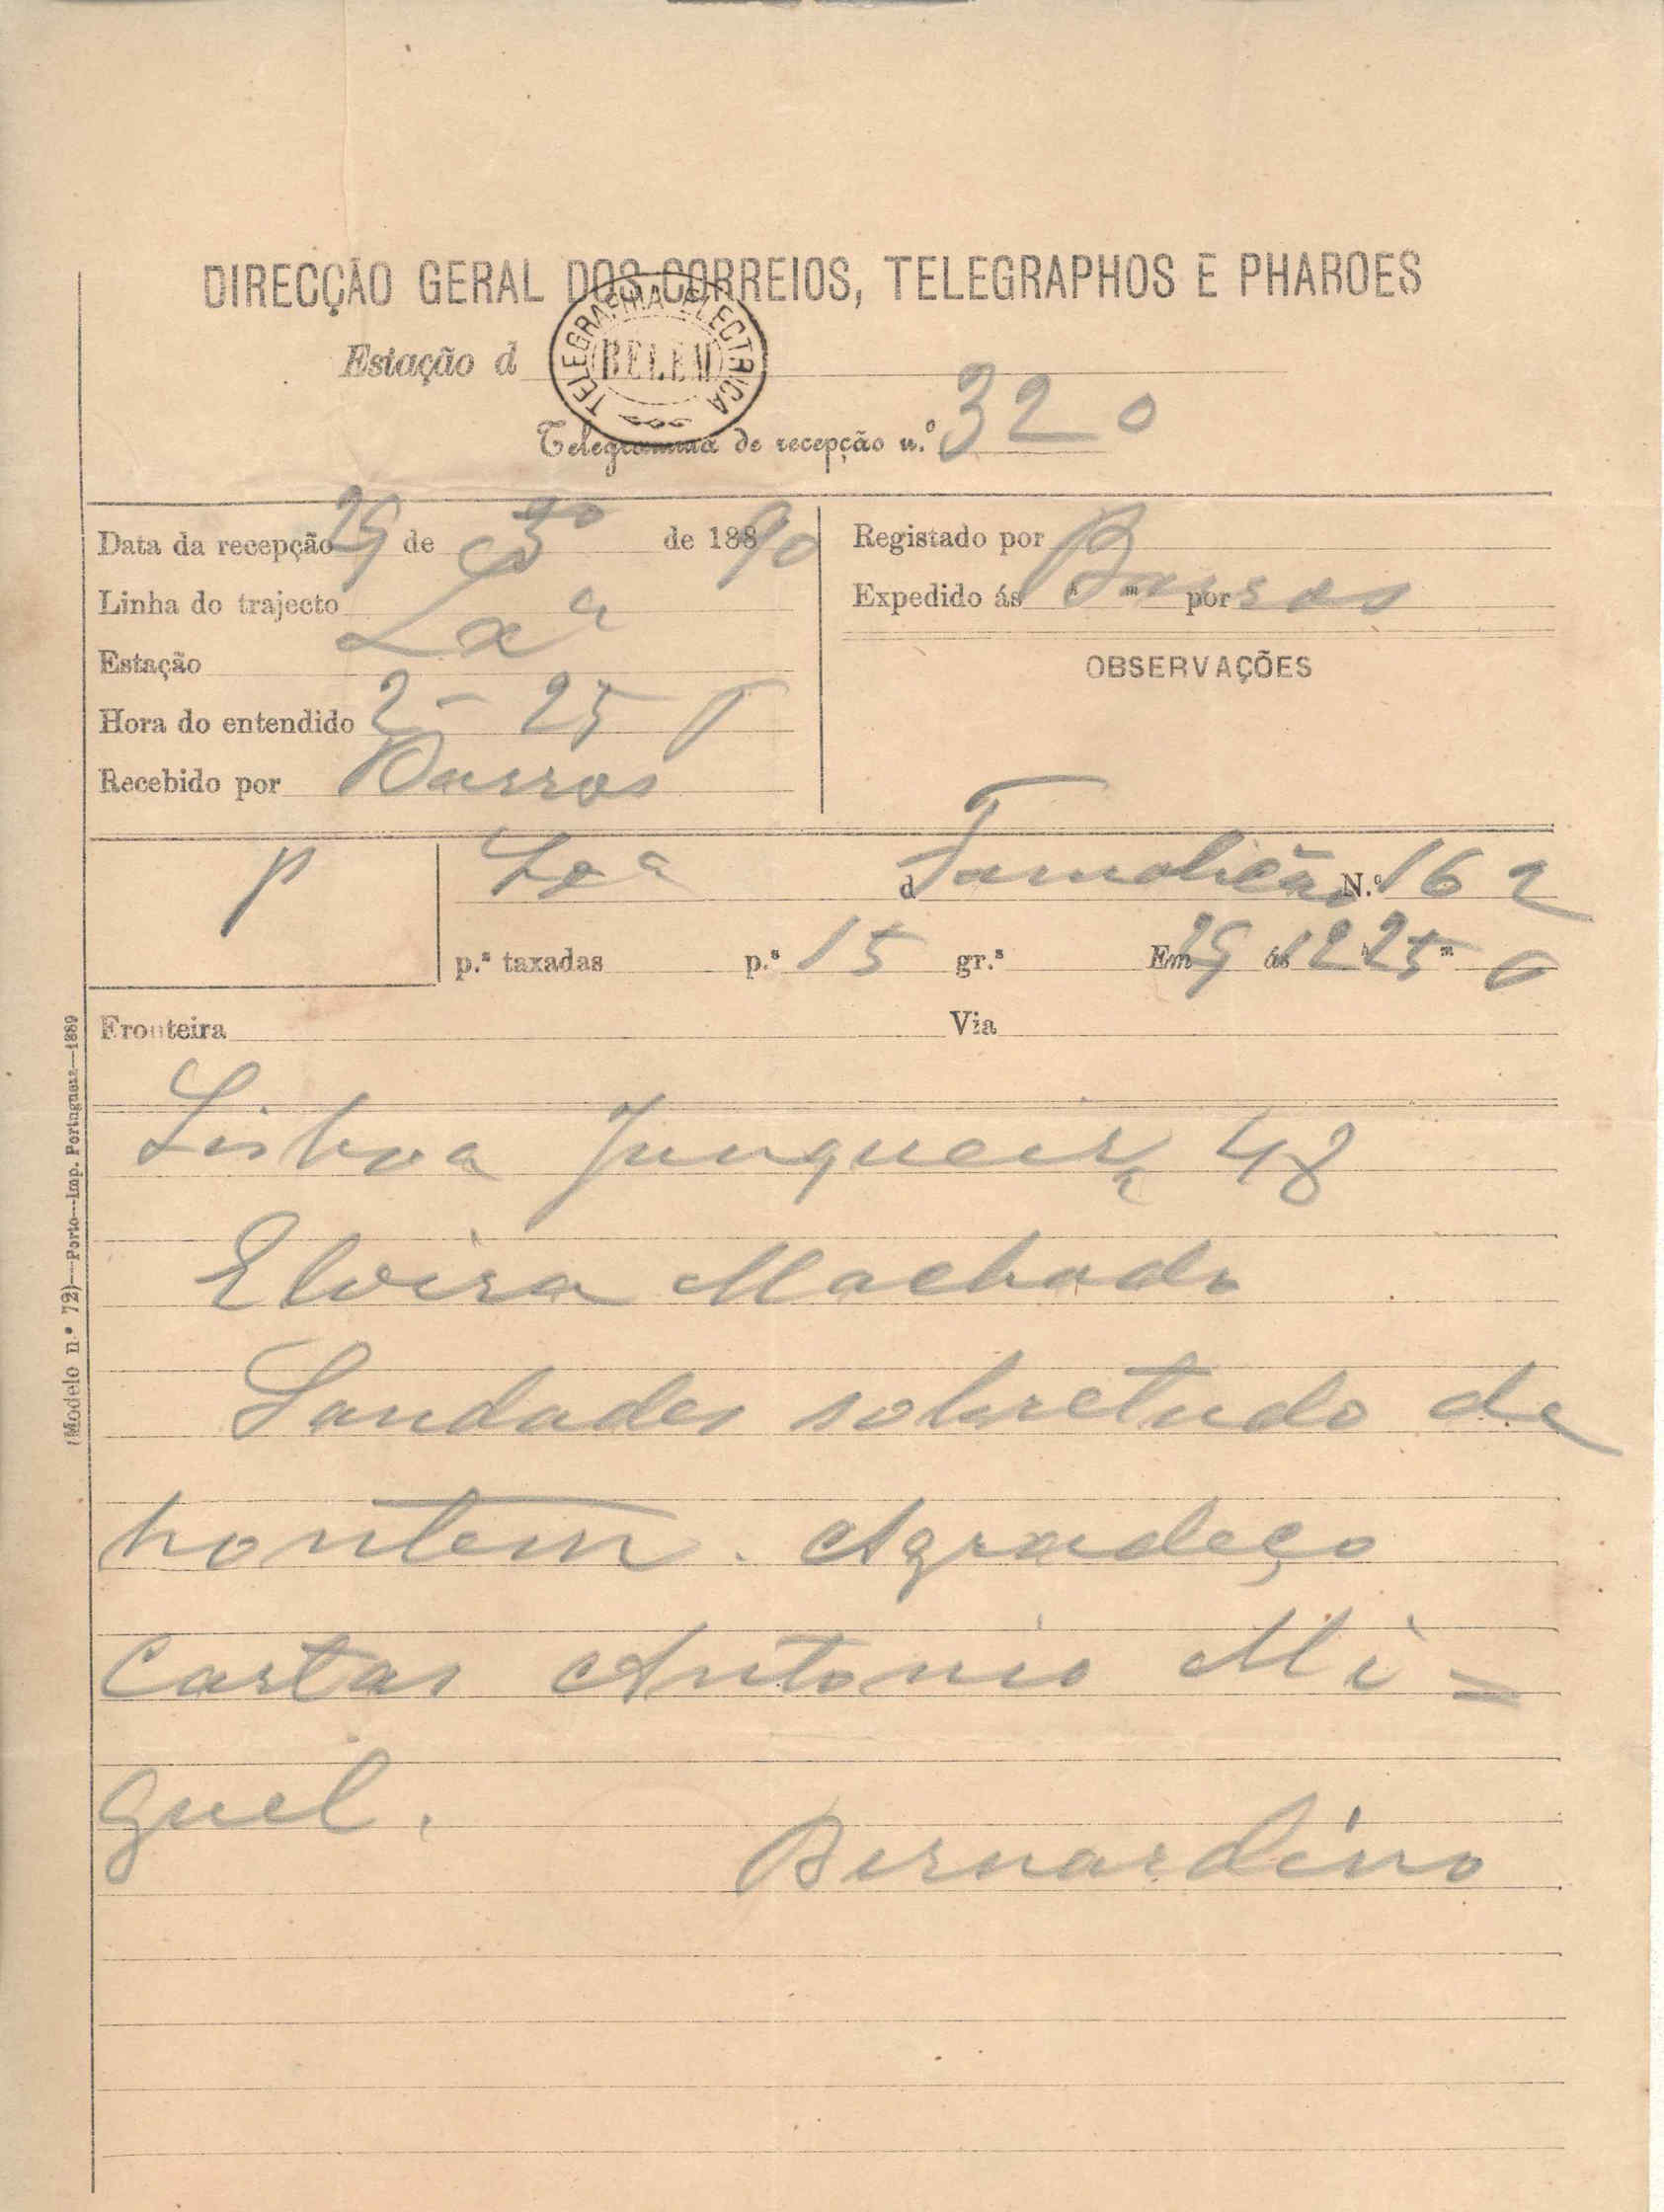 DIRECÇÃO GERAL DOS CORREIOS, TELEGRAPHOS E PHAROES
Estação d
TELEGRAPHIA ELECTRICA
BELEM
Telegramma de recepção n.º 320
Data da recepção 29 de 3º de 18890
Linha do trajecto
Lxª
Estação
Hora do entendido 2-25
Recebido por Barros
Registado por
Expedido ás h m por
Barros
OBSERVAÇÕES
P
Lxª d Famalicão N.º 162
p.ˢ taxadas p.ˢ 15 gr.ˢ Em 29 ás 2 h 25 m
Fronteira Via
Lisboa Junqueira 48
Elvira Machado
Saudades sobretudo de
hontem. Agradeço
Cartas Antonio Mi=
guel.
Bernardino
(Modelo n.º 72)—Porto—Imp. Portugueza—1889